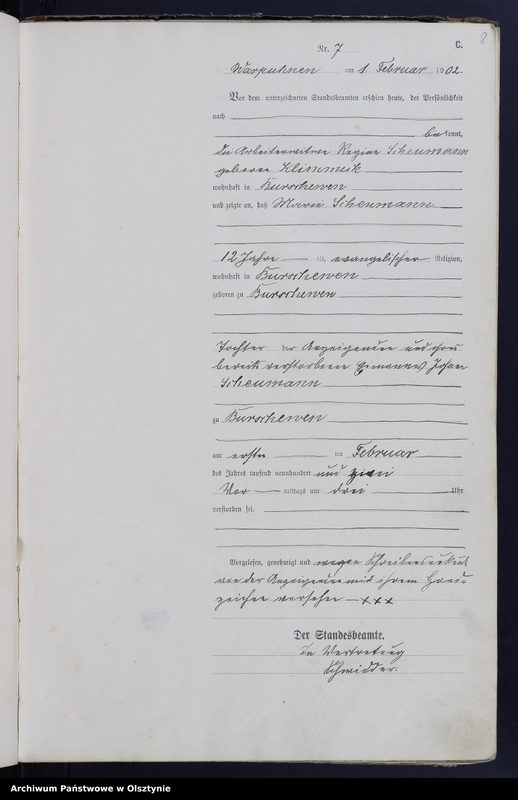 C.
8
Nr. 7
Warpuhnen am 1. Februar 1902.
Vor dem unterzeichneten Standesbeamten erschien heute, der Persönlichkeit
nach
bekannt,
die Arbeiterwitwe Regine Scheumann
geborene Klimmuk
wohnhaft in Burschewen
und zeigte an, daß Marie Scheumann
12 Jahre alt, evangelischer Religion,
wohnhaft in Burschewen
geboren zu Burschewen
Tochter der Anzeigenden und ihres
bereits verstorbenen Ehemannes Johann
Scheumann
zu Burschewen
am ersten Februar
des Jahres tausend neunhundert und zwei
Vor mittags um drei Uhr
verstorben sei.
Vorgelesen, genehmigt und wegen Schreibensunkunde
von der Anzeigenden mit ihrem Hand-
zeichen versehen xxx
Der Standesbeamte.
In Vertretung
Schwidder.
Archiwum Państwowe w Olsztynie